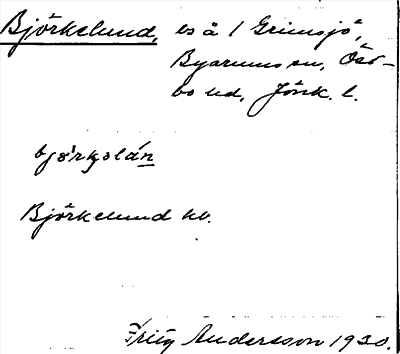 Björkelund, es å 1 Grimsjö,
Byarums sn, Öst-
bo hd, Jönk. l.
bjö̀rkəlún
Björkelund kb.
Fritz Andersson 1930.